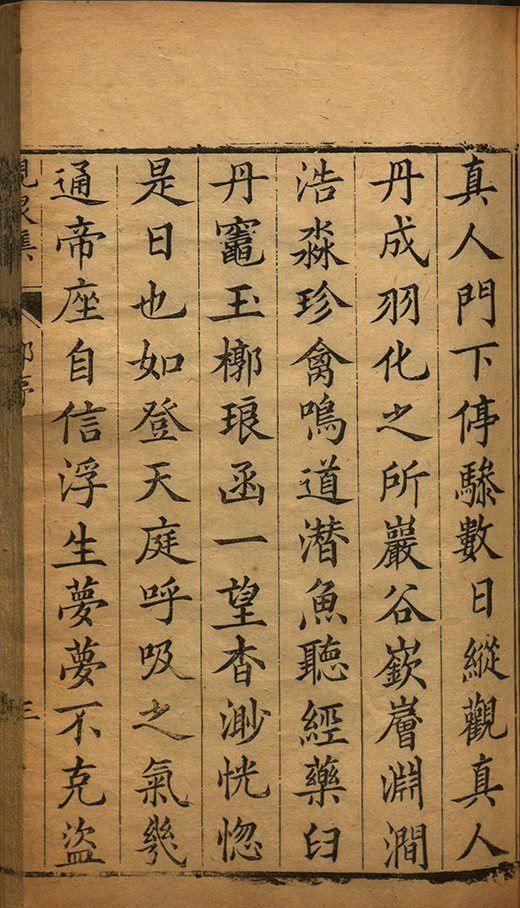 真人門下停驂數日縱觀真人
丹成羽化之所巖谷嶔嶒淵澗
浩淼珍禽鳴道潛魚聽經藥臼
丹竈玉槨琅函一望杳渺恍惚
是日也如登天庭呼吸之氣幾
通帝座自信浮生夢夢不克盜
峴泉集
三